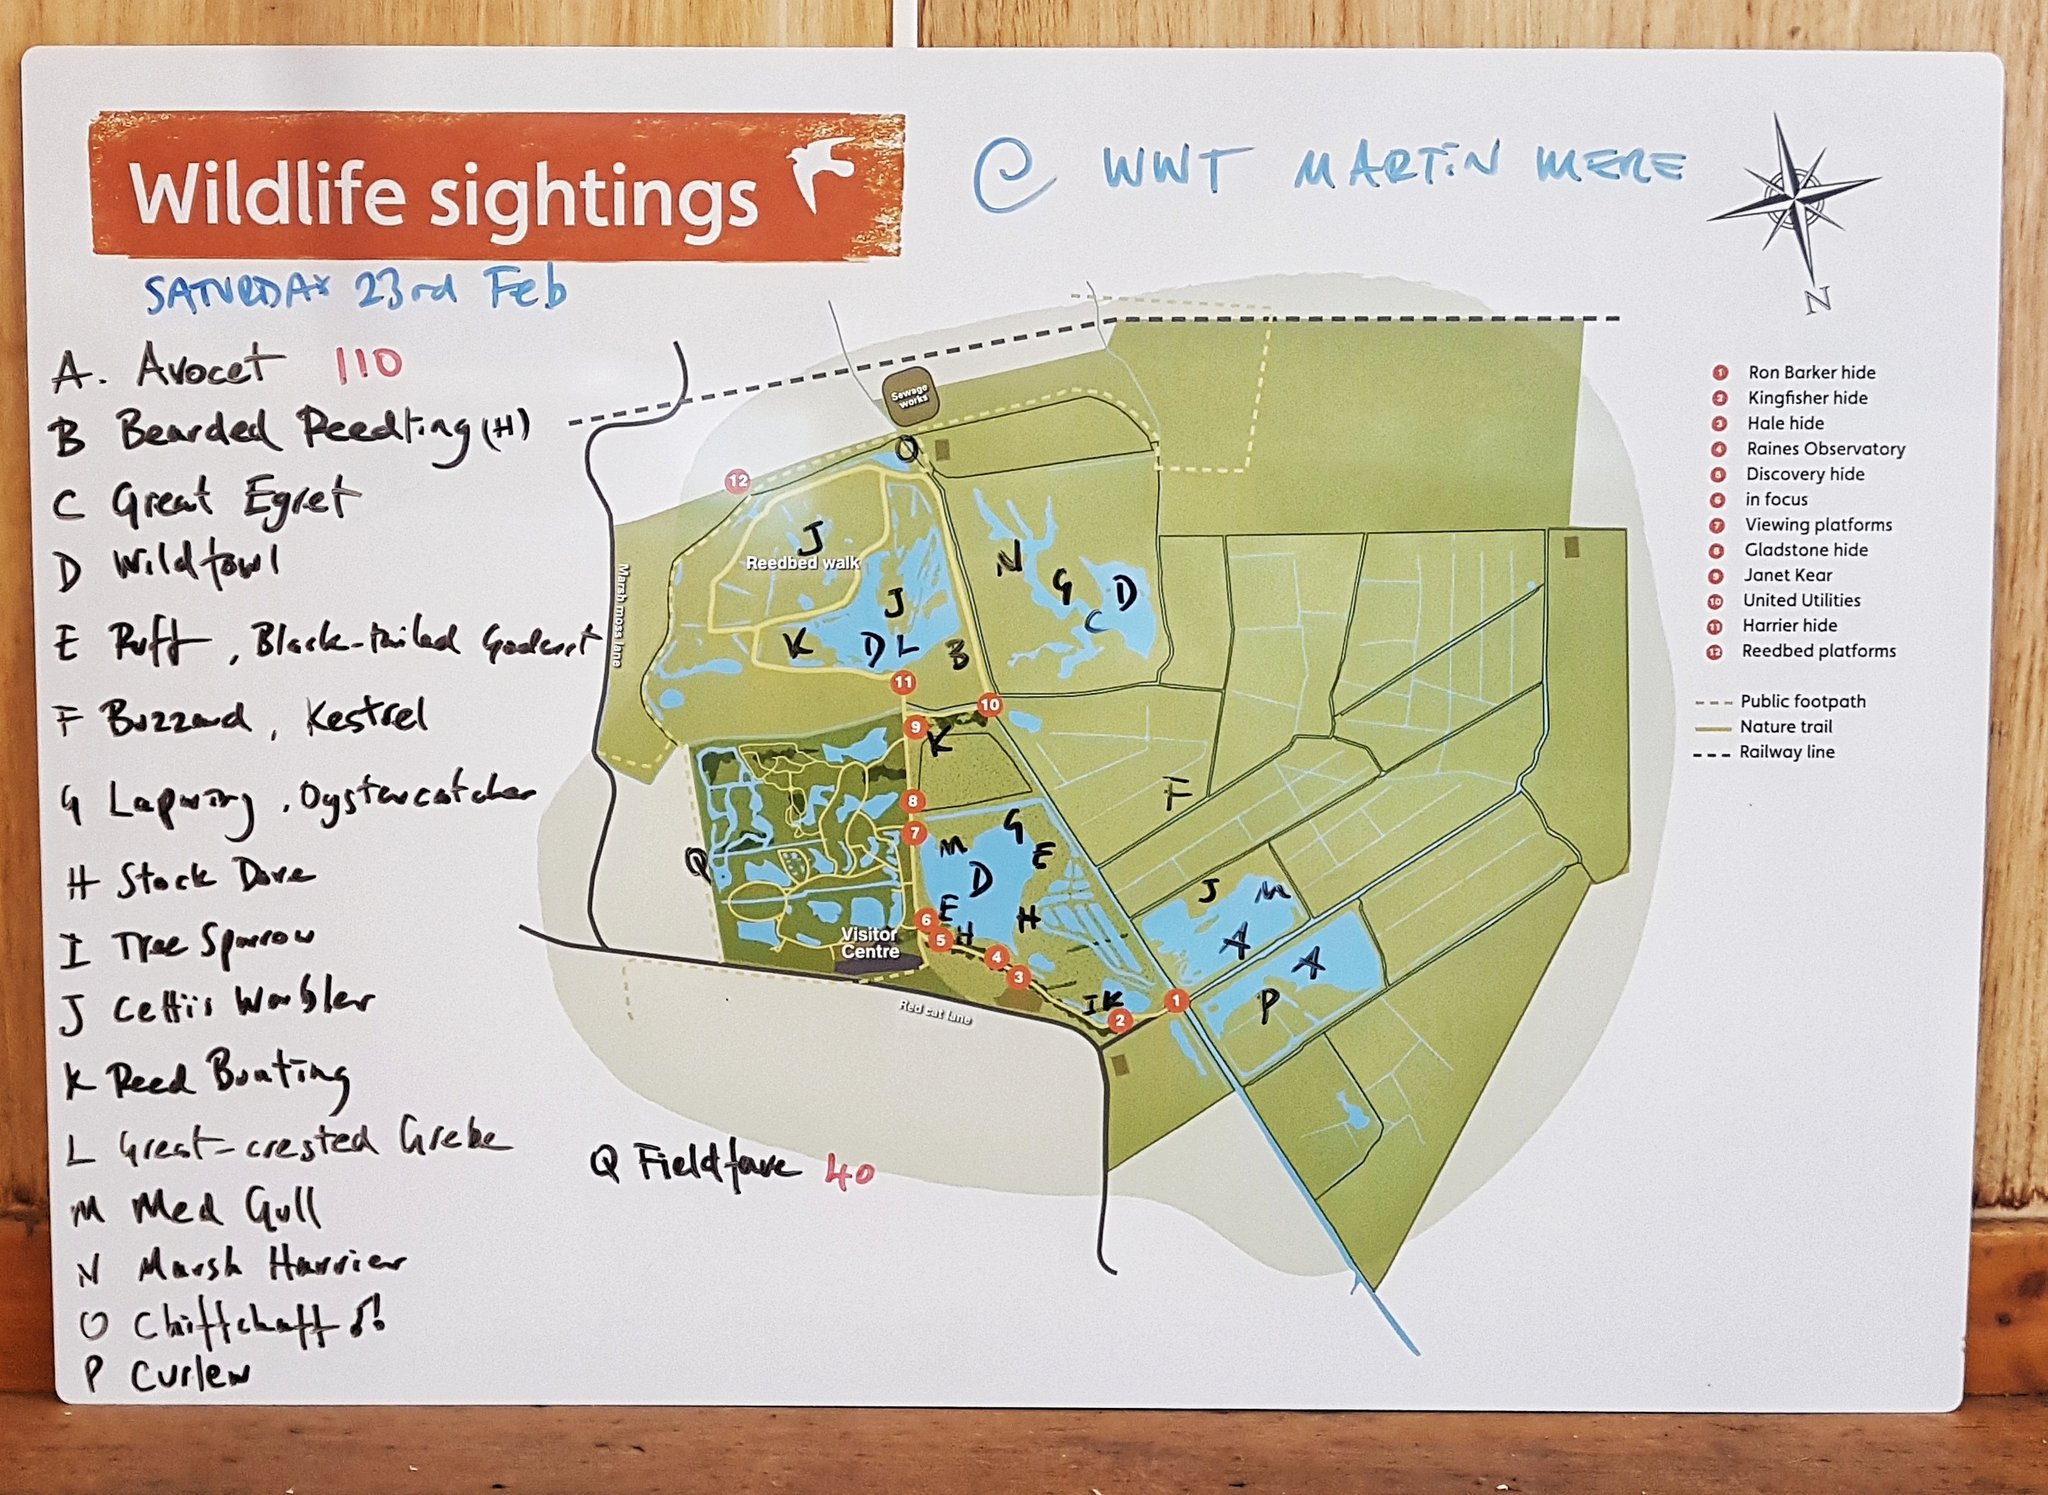 Wildlife sightings
@ WWT MARTIN MERE
SATURDAY 23rd Feb
N
A. Avocet 110
B Bearded Reedling (H)
C Great Egret
D Wildfowl
E Ruff, Black-tailed Godwit
F Buzzard, Kestrel
G Lapwing, Oystercatcher
H Stock Dove
I Tree Sparrow
J Cettiis Warbler
K Reed Bunting
L Great-crested Grebe
M Med Gull
N Marsh Harrier
O Chiffchaff
P Curlew
Q Fieldfare 40
Sewage
works
O
12
J
Reedbed walk
Marsh moss lane
N
G
D
C
J
K
D
L
B
11
10
9
K
F
8
7
G
M
E
D
Q
E
H
6
H
5
J
M
A
A
P
Visitor
Centre
4
3
I
K
1
2
Red cat lane
1 Ron Barker hide
2 Kingfisher hide
3 Hale hide
4 Raines Observatory
5 Discovery hide
6 in focus
7 Viewing platforms
8 Gladstone hide
9 Janet Kear
10 United Utilities
11 Harrier hide
12 Reedbed platforms
Public footpath
Nature trail
Railway line